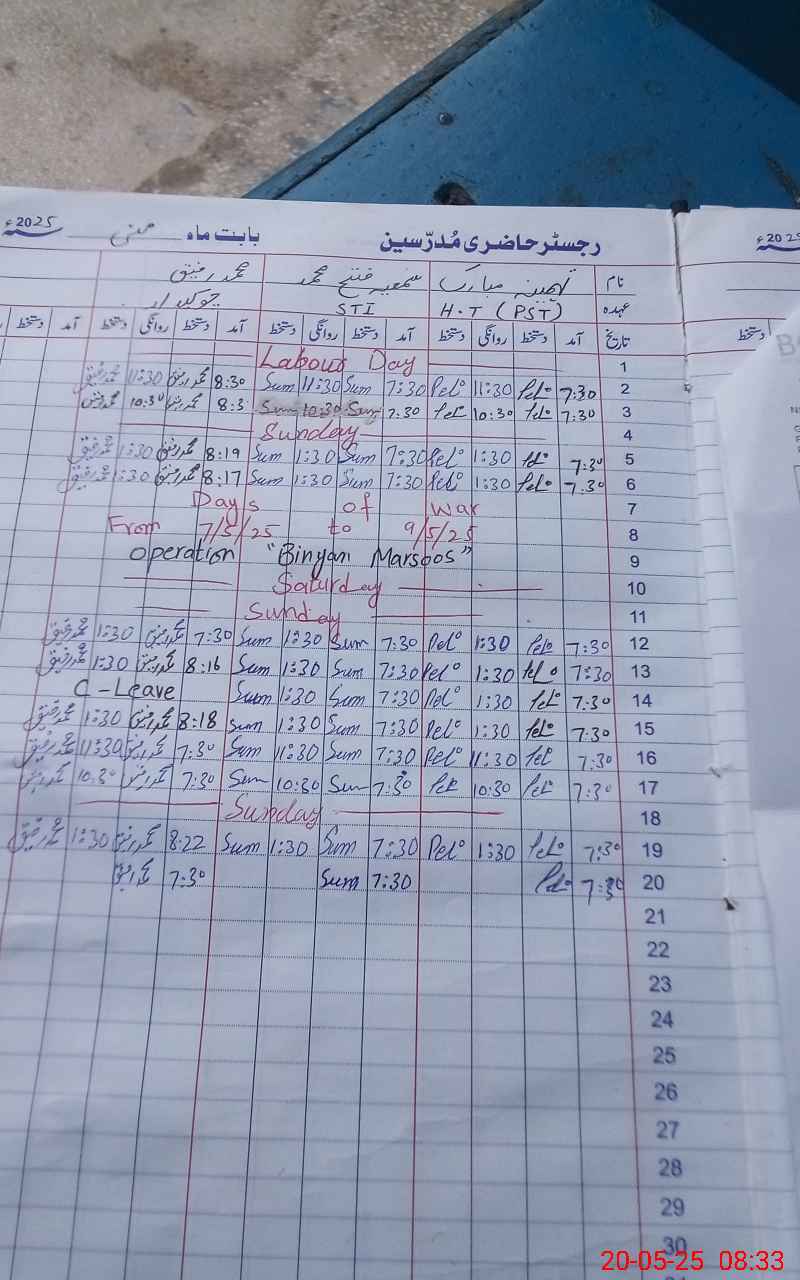 رجسٹر حاضری مُدرّسین بابت ماہ مئی 2025ء
2025ء
نام تہمینہ مبارک سمعیہ فتح محمد محمد رفیق
عہدہ H.T (PST) STI چوکیدار
تاریخ آمد دستخط روانگی دستخط آمد دستخط روانگی دستخط آمد دستخط روانگی دستخط آمد دستخط
دستخط
1 Labour Day
2 7:30 11:30 7:30 Sum 11:30 Sum 8:30 محمد رفیق 11:30 محمد رفیق
3 7:30 10:30 7:30 Sum 10:30 Sum 8:3 محمد رفیق 10:30 محمد رفیق
4 Sunday
5 7:30 1:30 7:30 Sum 1:30 Sum 8:19 محمد رفیق 1:30 محمد رفیق
6 7:30 1:30 7:30 Sum 1:30 Sum 8:17 محمد رفیق 1:30 محمد رفیق
7 Days of War
8 From 7/5/25 to 9/5/25
9 Operation "Binyan Marsoos"
10 Saturday
11 Sunday
12 7:30 1:30 7:30 Sum 1:30 Sum 7:30 محمد رفیق 1:30 محمد رفیق
13 7:30 1:30 7:30 Sum 1:30 Sum 8:16 محمد رفیق 1:30 محمد رفیق
14 7:30 1:30 7:30 Sum 1:30 Sum C-Leave
15 7:30 1:30 7:30 Sum 1:30 Sum 8:18 محمد رفیق 1:30 محمد رفیق
16 7:30 11:30 7:30 Sum 11:30 Sum 7:30 محمد رفیق 11:30 محمد رفیق
17 7:30 10:30 7:30 Sum 10:30 Sum 7:30 محمد رفیق 10:30 محمد رفیق
18 Sunday
19 7:30 1:30 7:30 Sum 1:30 Sum 8:22 محمد رفیق 1:30 محمد رفیق
20 7:30 7:30 Sum 7:30 محمد رفیق
21
22
23
24
25
26
27
28
29
30
20-05-25 08:33